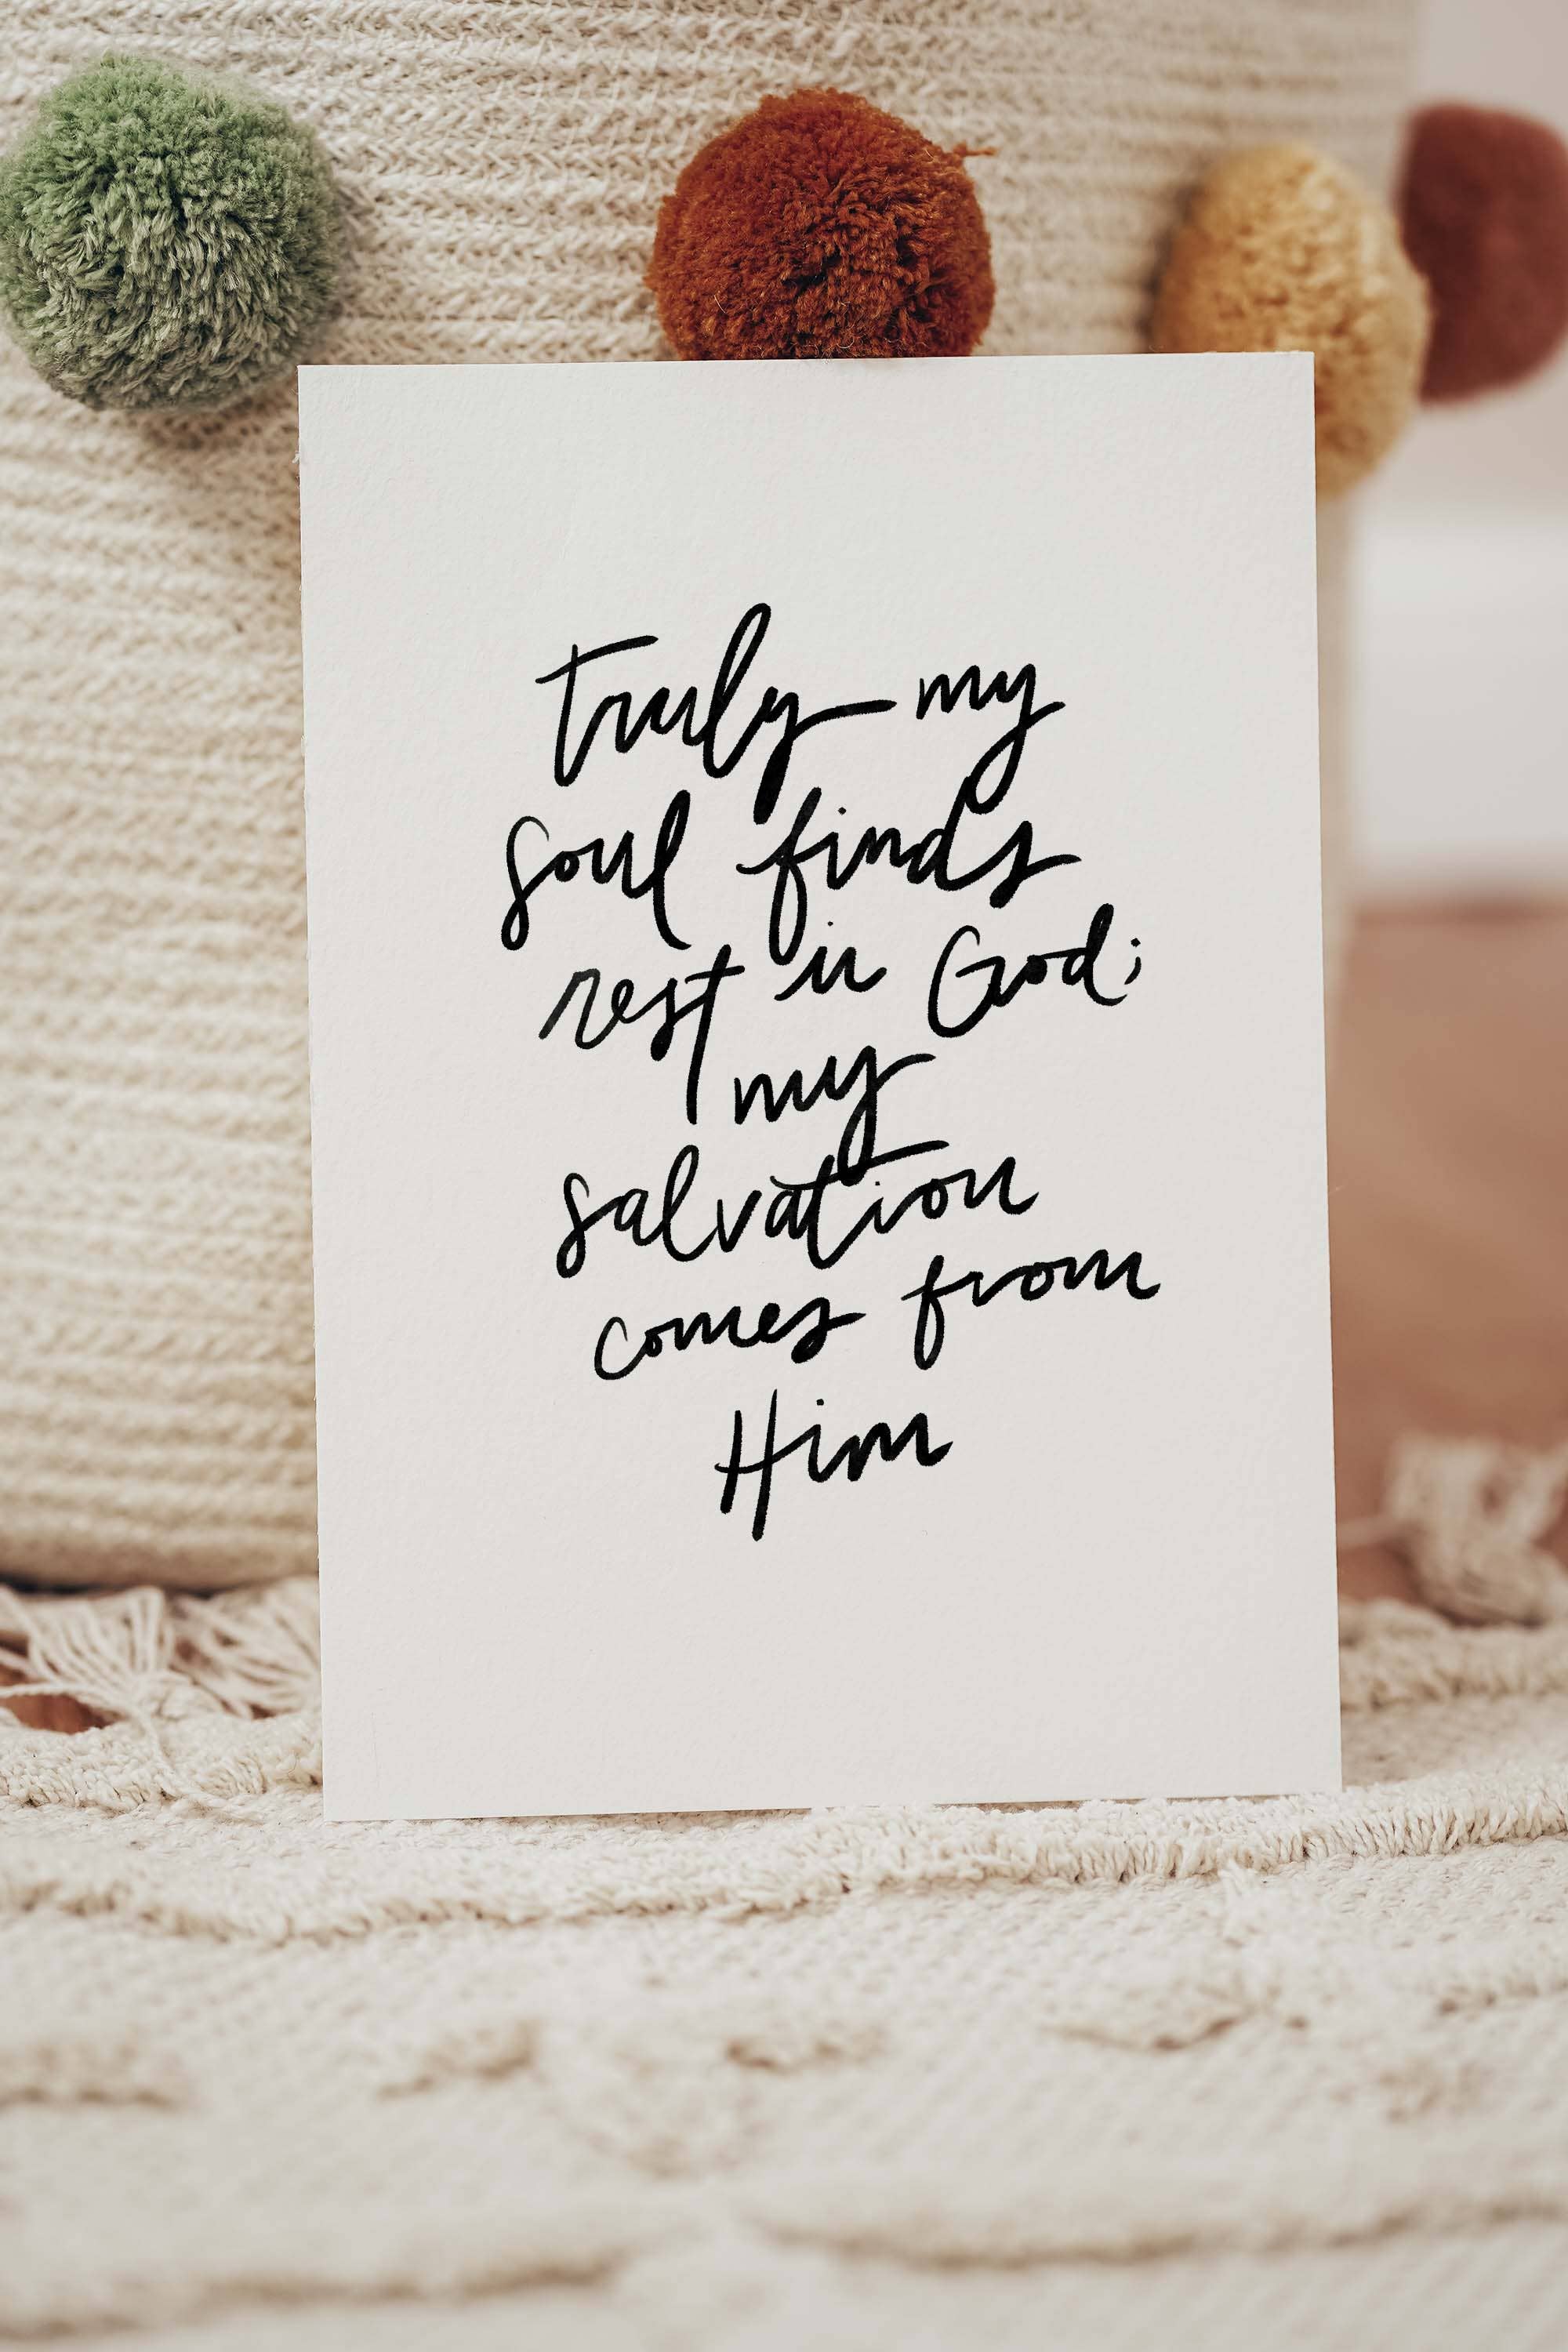 truly my
soul finds
rest in God;
my
salvation
comes from
Him